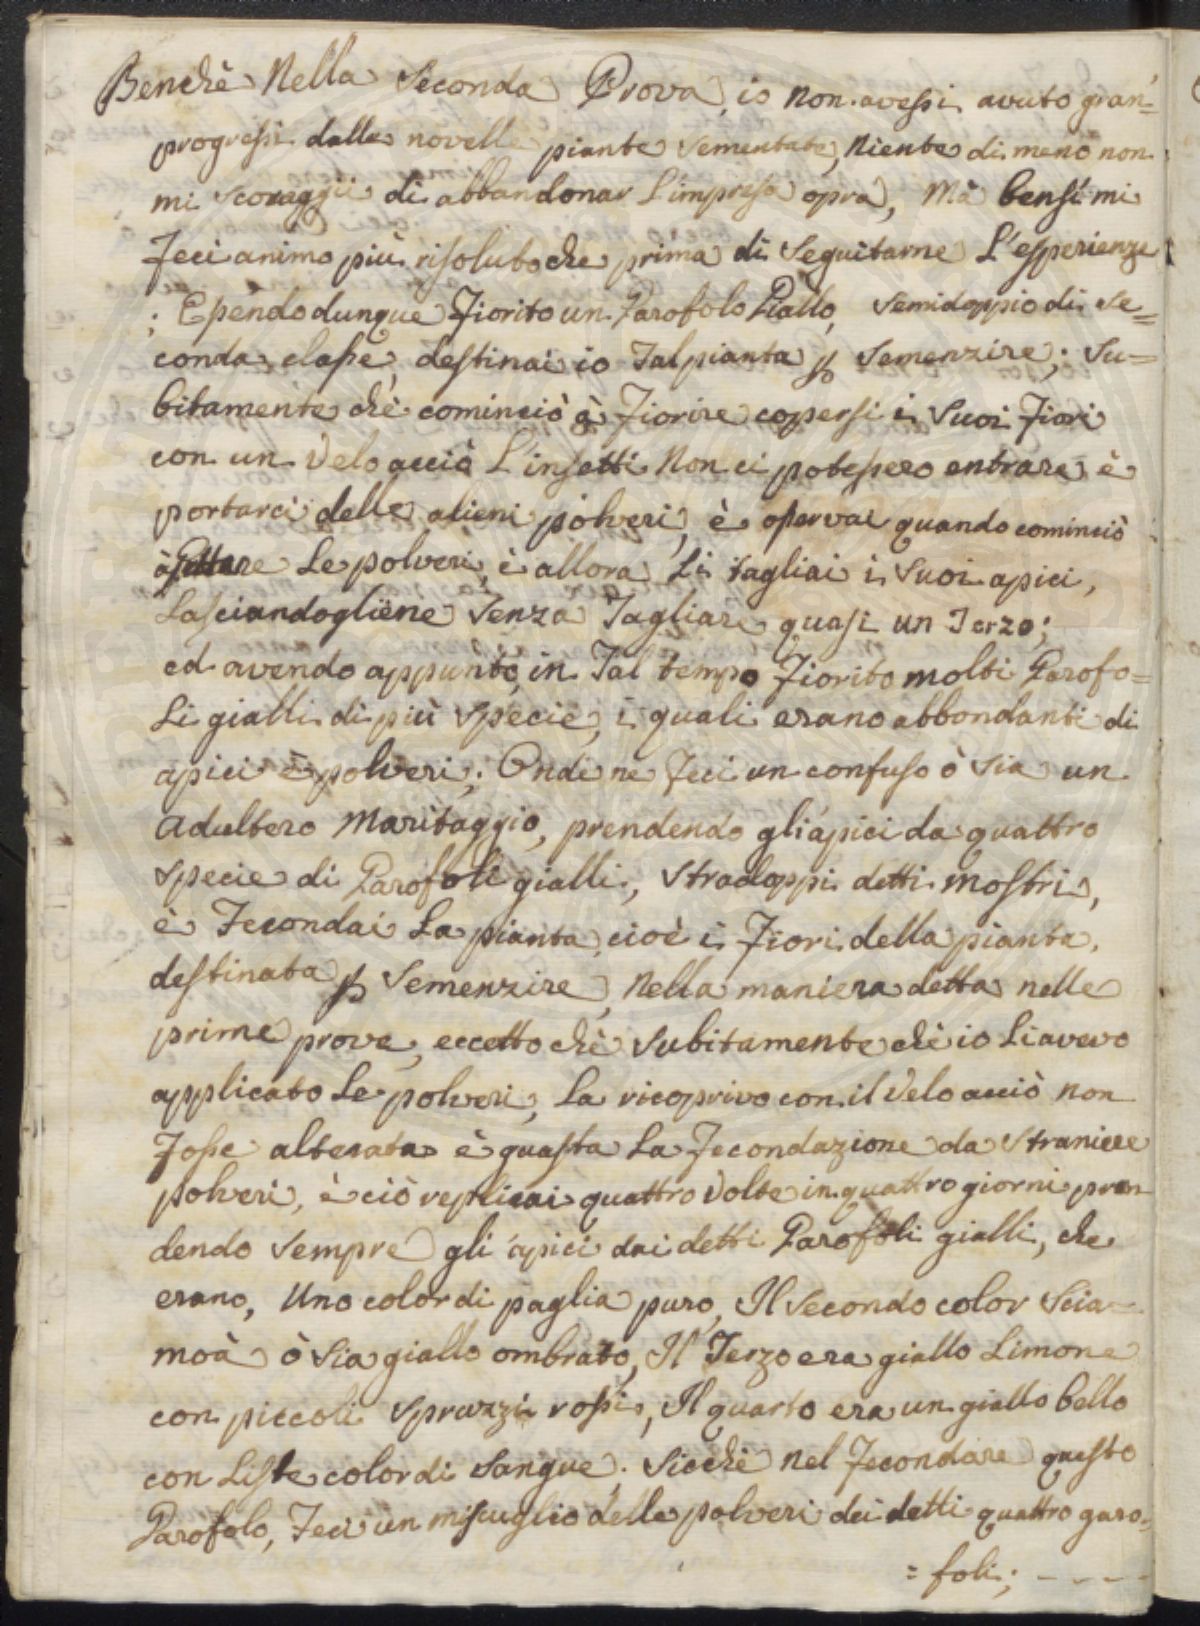 Benchè Nella Seconda Prova, io non avessi avuto gran=
progressi dalle novelle piante sementate, Niente di meno non
mi scoraggii di abbandonar L'impresa opra, Mà bensi mi
feci animo più risoluto che prima di seguitarne L'esperienze
; Essendo dunque fiorito un Garofolo Giallo, semidoppio di se=
conda classe, destinai io Tal pianta p semenzire; Su=
bitamente chè cominciò à fiorire copersi i suoi fiori
con un Velo acciò L'insetti Non ci potessero entrare è
portarci delle alieni polveri, è osservai quando cominciò
à Gettare Le polveri, è allora Li tagliai i suoi apici,
Lasciandogliene senza Tagliare quasi un Terzo;
ed avendo appunto, in Tal tempo fiorito molti Garofo=
Li gialli di più specie, i quali erano abbondanti di
apici è polveri; Onde ne feci un confuso ò sia un
Adultero Maritaggio, prendendo gli apici da quattro
specie di Garofoli gialli, stradoppi detti mostri,
è Fecondai La pianta, cioè i fiori della pianta,
destinata p semenzire, Nella maniera detta nelle
prime prove, eccetto chè subitamente chè io Li avevo
applicato Le polveri, La ricoprivo con il Velo acciò non
fosse alterata è guasta La fecondazione da straniere
polveri, è ciò replicai quattro Volte in quattro giorni pren
dendo sempre gli apici dai detti Garofoli gialli, che
erano, Uno color di paglia puro, Il secondo color Scia=
moà ò sia giallo ombrato, Il Terzo era giallo Limone
con piccoli spruzzi rossi, Il quarto era un giallo bello
con Liste color di sangue. Sicchè nel fecondare questo
Garofolo, Feci un miscuglio delle polveri dei detti quattro garo=
=foli; - - - -